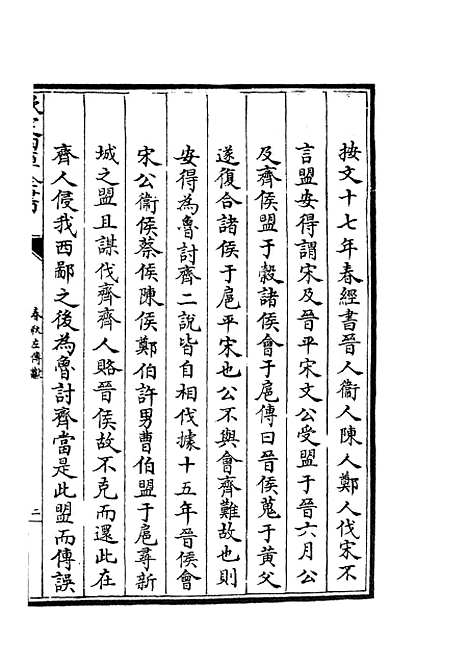 按文十七年春經書晉人衞人陳人鄭人伐宋不
言盟安得謂宋及晉平宋文公受盟于晉六月公
及齊侯盟于穀諸侯會于扈傳曰晉侯蒐于黄父
遂復合諸侯于扈平宋也公不與會齊難故也則
安得為魯討齊二說皆自相伐據十五年晉侯會
宋公衞侯蔡侯陳侯鄭伯許男曹伯盟于扈尋新
城之盟且謀伐齊齊人賂晉侯故不克而還此在
齊人侵我西鄙之後為魯討齊當是此盟而傳誤
欽定四庫全書
春秋左傳讞
二